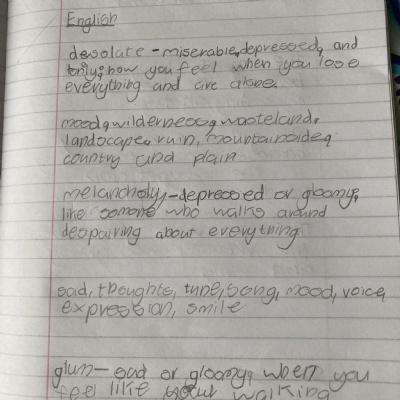 English
desolate - miserable, depressed, and
how you feel when you lose
everything and are alone.
mood, wilderness, wasteland,
landscape, ruin, mountainside,
country and plain
melancholy - depressed or gloomy,
like somone who walks around
despairing about everything
sad, thoughts, tune, song, mood, voice,
expression, smile
glum - sad or gloomy, when you
feel like your walking